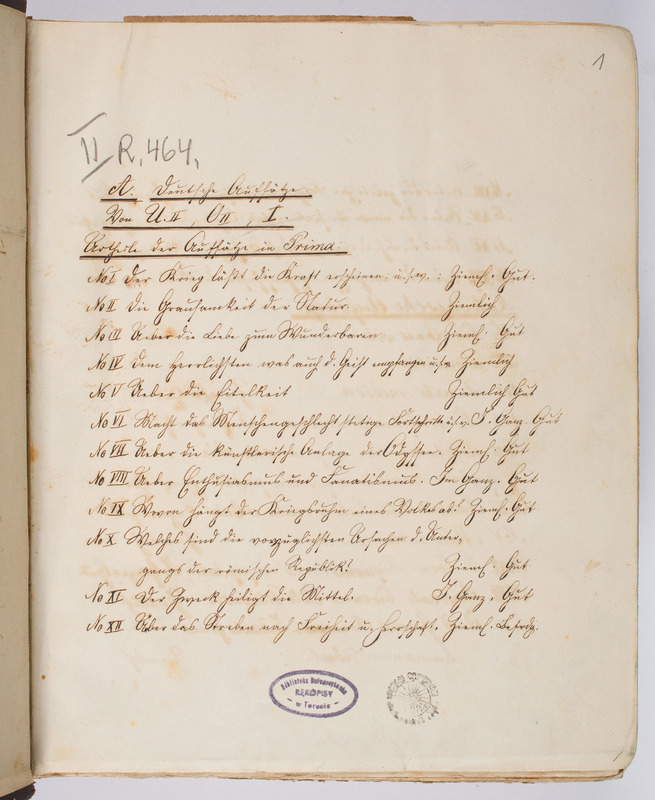 1
II R. 464.
A. Deutsche Aufsätze
Von U. II, O II I.
Urtheile der Aufsätze in Prima:
No I Der Krieg läßt die Kraft erscheinen: u.s.w.: Zieml. Gut.
No II Die Grausamkeit der Natur. Ziemlich
No III Ueber die Liebe zum Wunderbaren Zieml. Gut
No IV Dem Herrlichsten was auch d. Geist empfangen u.s.w. Ziemlich
No V Ueber die Eitelkeit Ziemlich Gut
No VI Macht das Menschengeschlecht stetige Fortschritte u.s.w. I. Ganz. Gut
No VII Ueber die künstlerische Anlage der Odyssee. Zieml. Gut
No VIII Ueber Enthusiasmus und Fanatismus. Im Ganz. Gut
No IX Wovon hängt der Kriegsruhm eines Volkes ab? Zieml. Gut
No X Welches sind die vorzüglichsten Ursachen d. Unter-
gangs der römischen Republik? Zieml. Gut
No XI Der Zweck heiligt die Mittel. I. Ganz. Gut
No XII Über das Streben nach Freiheit u. Herrschaft. Zieml. Befrdg.
Biblioteka Uniwersytecka
RĘKOPISY
w Toruniu